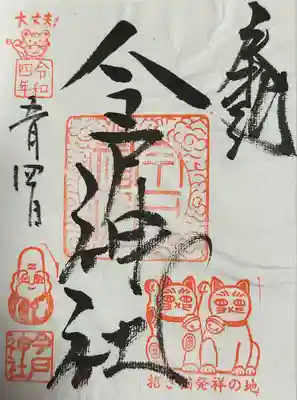 奉拝
今戸神社
大丈夫!
令和
四年
五月四日
招き猫発祥の地
今戸
神社